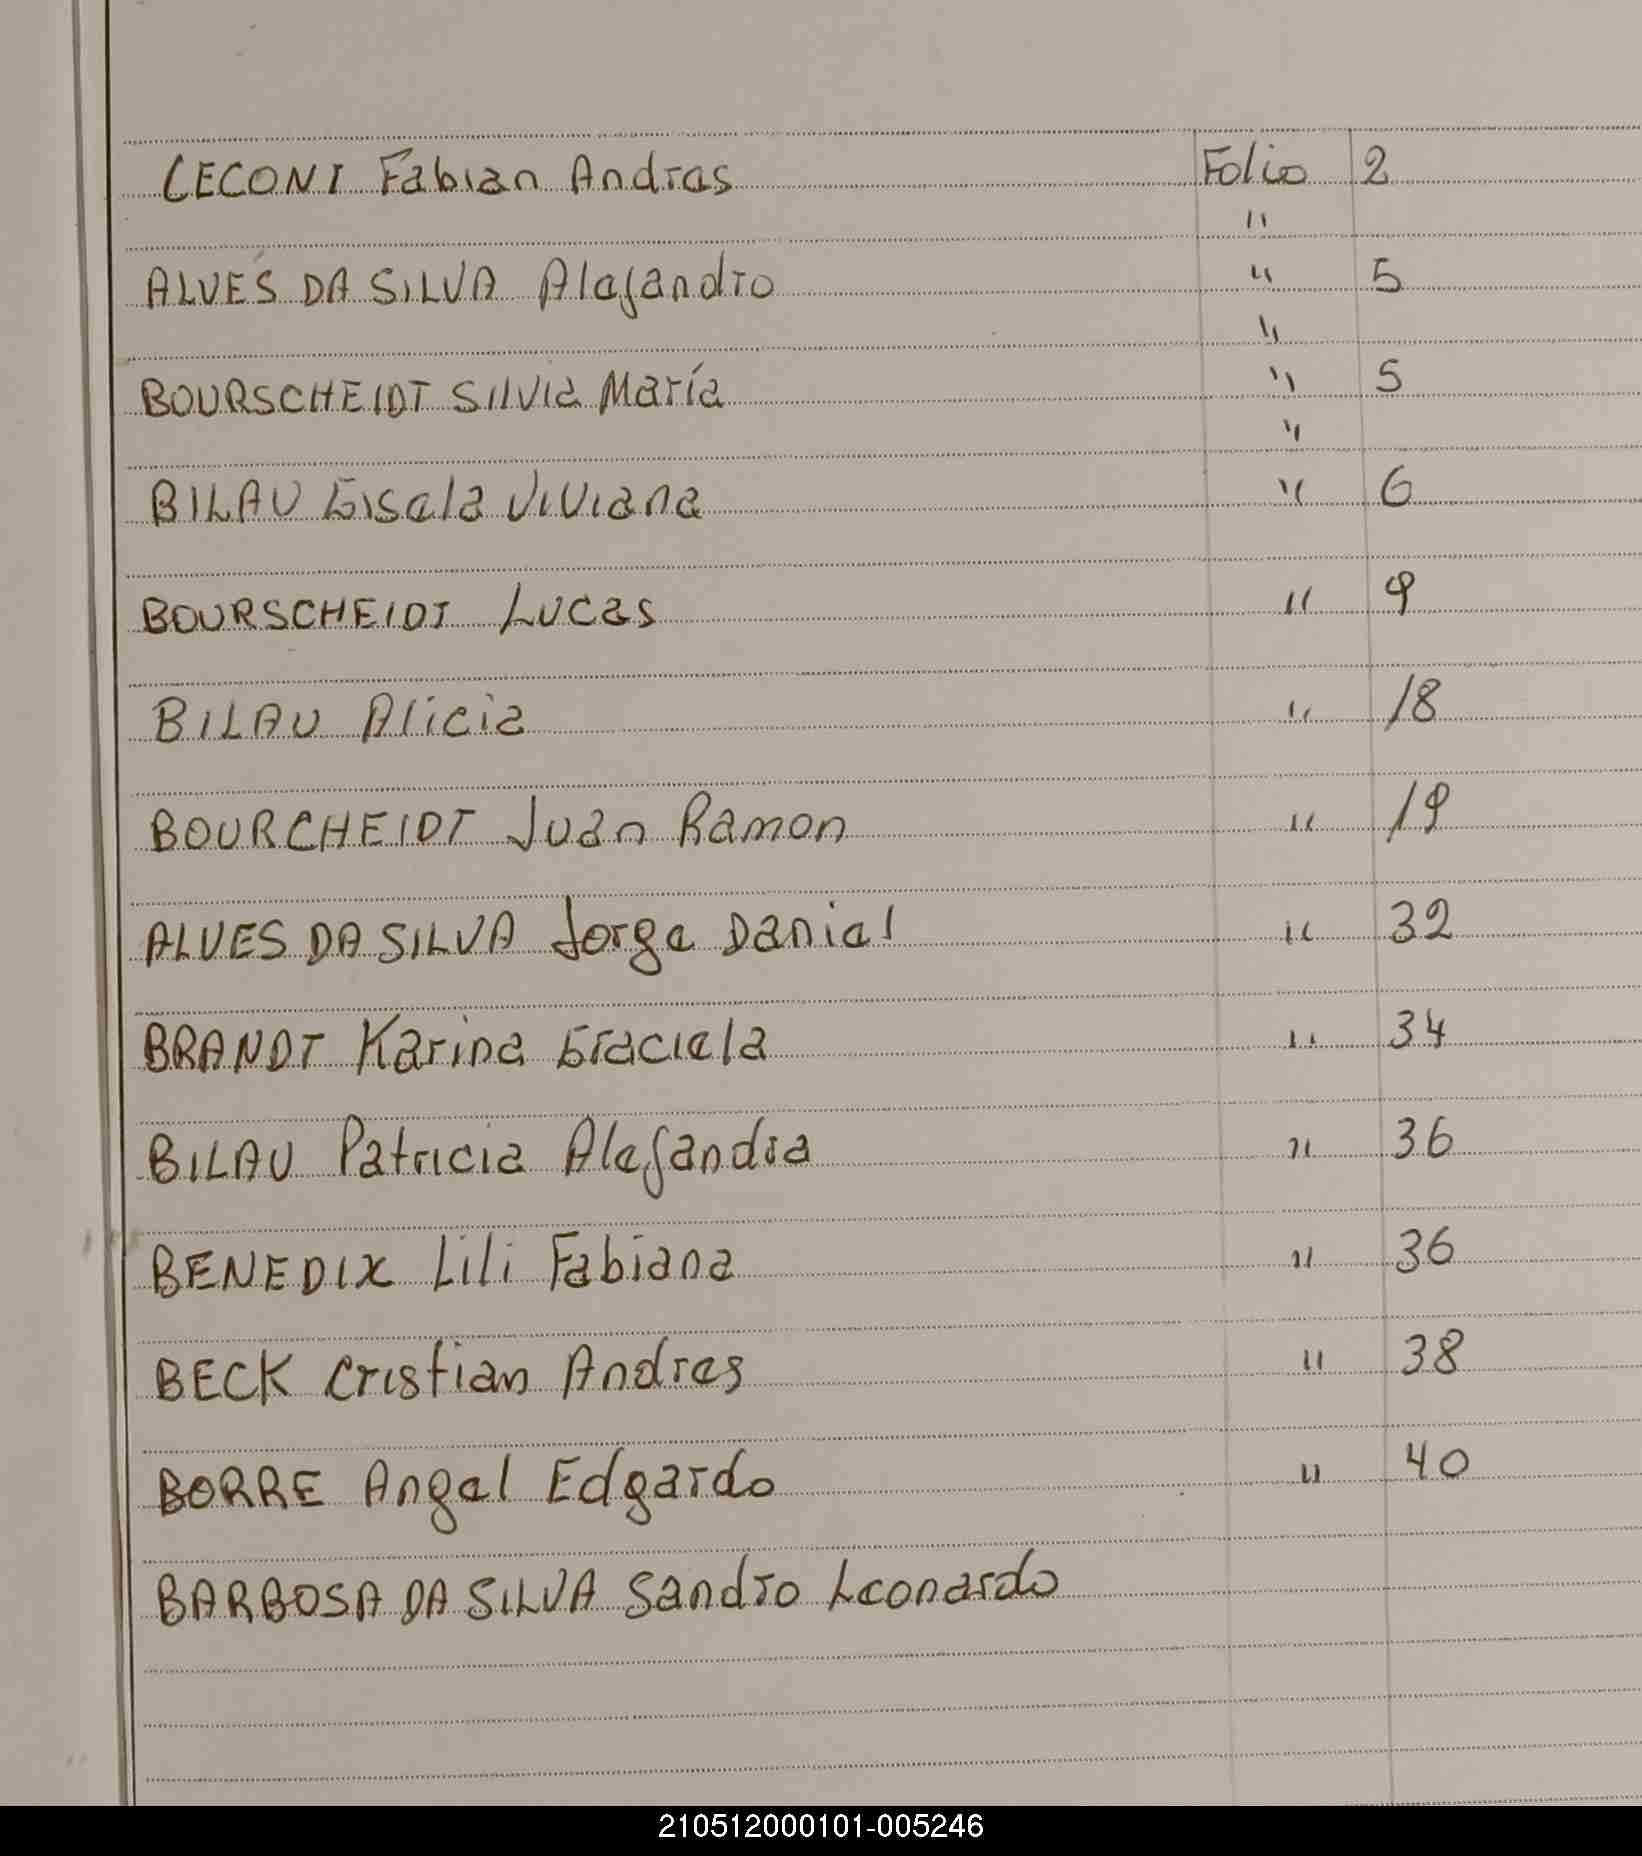 CECONI Fabian Andres Folio 2
"
ALVES DA SILVA Alejandro " 5
"
BOURSCHEIDT Silvia María " 5
"
BILAU Gisela Viviana " 6
BOURSCHEIDT Lucas " 9
BILAU Alicia " 18
BOURCHEIDT Juan Ramon " 19
ALVES DA SILVA Jorge Daniel " 32
BRANDT Karina Graciela " 34
BILAU Patricia Alejandra " 36
BENEDIX Lili Fabiana " 36
BECK Cristian Andres " 38
BORRE Angel Edgardo " 40
BARBOSA DA SILVA Sandro Leonardo
210512000101-005246